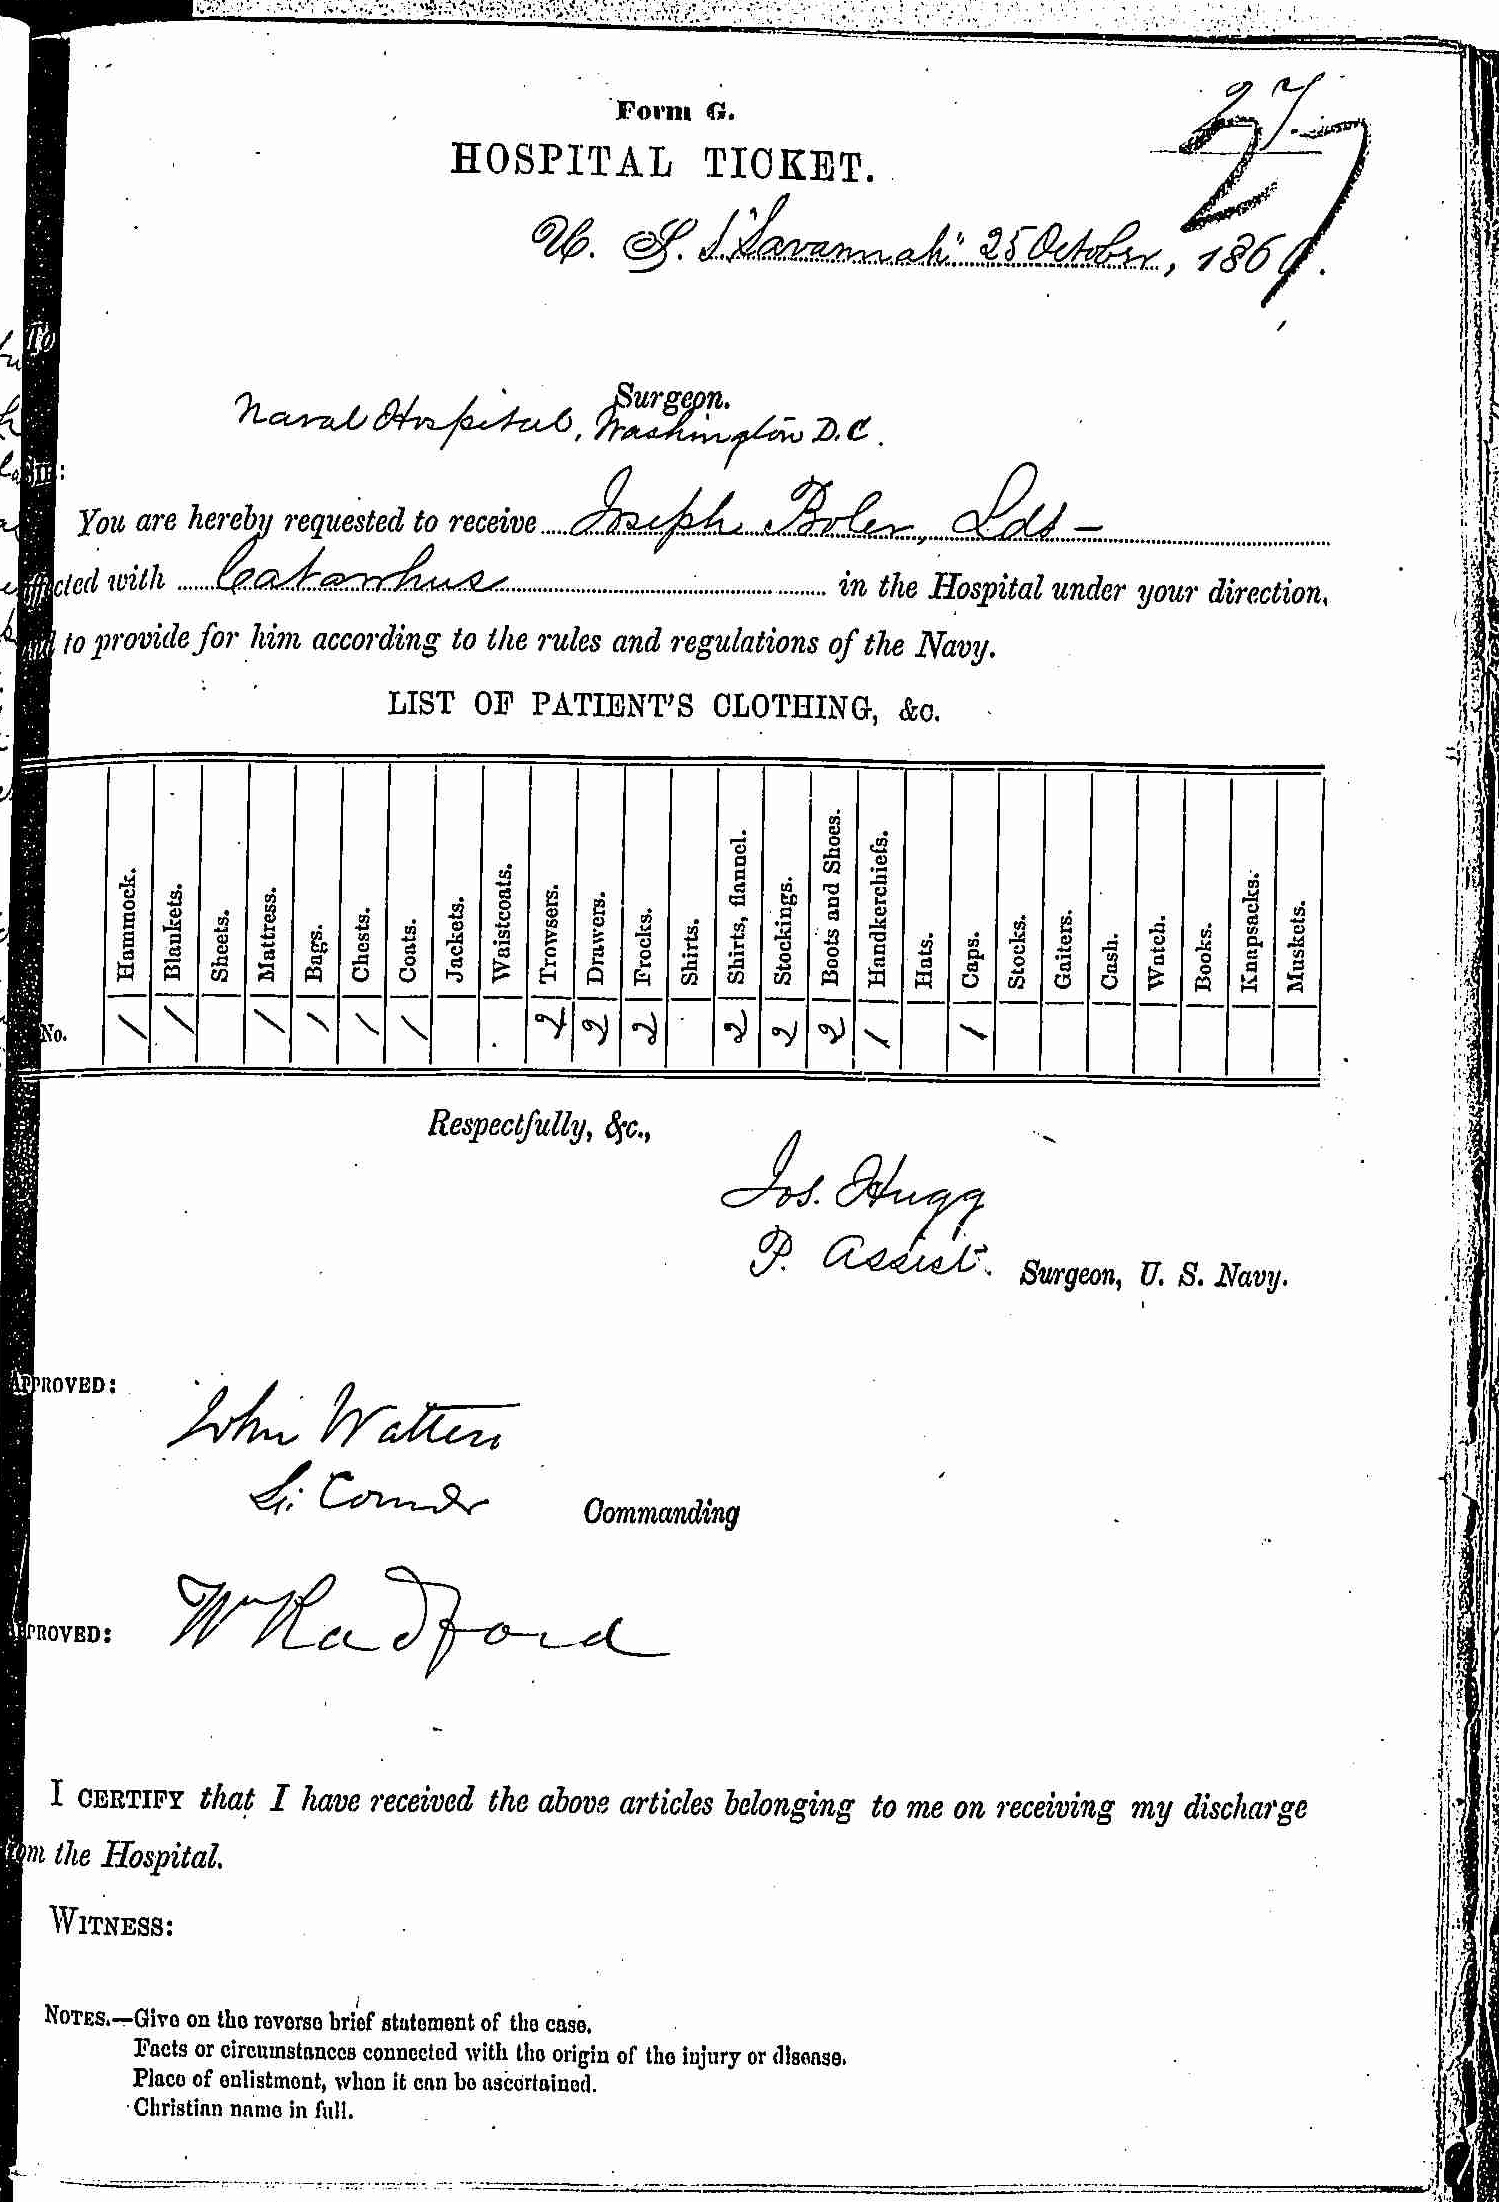 Form G.
27
27
HOSPITAL TICKET.
U. S. S. "Savannah" 25 October, 186
To
Surgeon.
Naval Hospital, Washington D.C.
SIR:
You are hereby requested to receive Joseph Boler, Lds —
affected with Catarrhus in the Hospital under your direction,
and to provide for him according to the rules and regulations of the Navy.
LIST OF PATIENT'S CLOTHING, &c.
Hammock. Blankets. Sheets. Mattress. Bags. Chests. Coats. Jackets. Waistcoats. Trowsers. Drawers. Frocks. Shirts. Shirts, flannel. Stockings. Boots and Shoes. Handkerchiefs. Hats. Caps. Stocks. Gaiters. Cash. Watch. Books. Knapsacks. Muskets.
No. 1 1 1 1 1 1 2 2 2 2 2 2 1 1
Respectfully, &c.,
Jos. Hugg
P. Assist. Surgeon, U. S. Navy.
APPROVED:
John Watters
Lt. Comdr Commanding
APPROVED: Wm Radford
I CERTIFY that I have received the above articles belonging to me on receiving my discharge
from the Hospital.
WITNESS:
NOTES.—Give on the reverse brief statement of the case.
Facts or circumstances connected with the origin of the injury or disease.
Place of enlistment, when it can be ascertained.
Christian name in full.